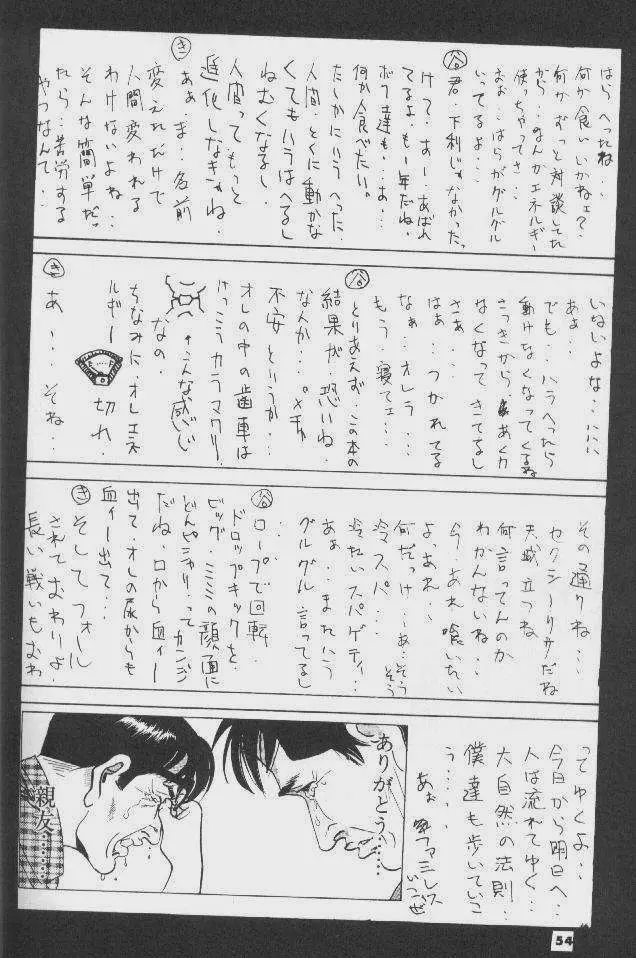 はら へったね…
何か食いいかねェ？…
何か ずっと対談してた
から…なんかエネルギー
使っちゃってさ…
おぉ…はらがグルグル
いってるよ…
谷 君、下利じゃなかった
てるよ。もー年だね。
ボク達も…あ…
何か食べたい。
たしかにハラへった。
人間、とくに動かな
くてもハラはへるし
ねむくなるし、
人間って、もっと
進化しなきゃね、
き あぁ、ま、名前
変えただけで
人間変われる
わけないよね…
そんな簡単だっ
たら…苦労する
やつなんて…
いないよな…
あぁ…
でも…ハラへったら
動けなくなってくるね
さっきから あく力
なくなってきてるし
さぁ…
はぁ…つかれてる
なぁ…オレら…
もう…寝てェ…
谷 とりあえず、この本の
結果が、恐いね、
なんか…
不安というか…
オレの中の歯車は
けっこうカラマワリ、
←こんな感じ
なの。
ちなみに、オレ エネ
ルギー 切れ、
き あ…そね…
その通りね…
セクシーリサだね
天城 立つね
何言ってんのか
わかんないね…
今、あれ 喰いたい
よ、あれ…
何だっけ…あ…そう
そう
冷スパ…
冷たいスパゲティ…
あぁ…またハラ
グルグル 言ってるし
…
谷 ロープで回転
ドロップキックを
ビッグ・ミミミの顔面に
どんピシャリ、ってカンジ
だね、口から血ィー
出て、オレの尿からも
血ィー出て…
き そしてフォール
されておわりよ、
長い戦いもおわ
ってゆくよ…
今日から明日へ…
人は流れてゆく…
大自然の法則…
僕達も歩いていこ
う…っ
あぉ ファミレス
いこぜ
ありがとう……
親友………
54